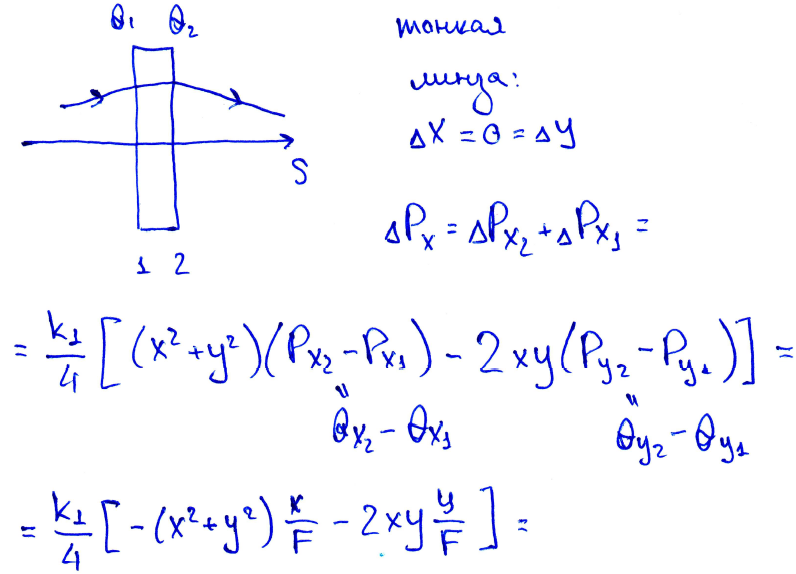 θ₁ θ₂
тонкая
линза:
ΔX = 0 = Δy
S
ΔPₓ = ΔPₓ₂ + ΔPₓ₁ =
1 2
= k₁/4 [ (x² + y²)(Pₓ₂ − Pₓ₁) − 2xy(P_y₂ − P_y₁) ] =
" "
θₓ₂ − θₓ₁ θ_y₂ − θ_y₁
= k₁/4 [ −(x² + y²) x/F − 2xy y/F ] =